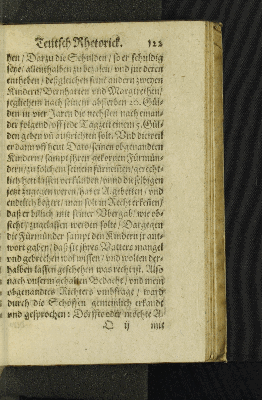 Teutsch Rhetorick. 122
ken / Darzu die Schulden / so er schuldig
seye / allenthalben zu bezalen / vnd sie deren
entheben / deßgleichen seinen andern zweyen
Kindern / Bernharten vnd Margrethen /
jeglichem nach seinem absterben 20. Gül-
den in vier Jaren die nechsten nach einan-
der folgend / vff jede Tagzeit einem 5. Gül-
den geben vñ außrichten solt. Vnd dieweil
er dann vff heut Dato / seinen obgenanten
Kindern / sampt jhren gekornen Fürmün-
dern / zu solchem seinem fürnemen / gericht-
lich hett lassen verkünden / vnnd dieselbigen
jetzt zugegen weren / bat er
endtlich begert / man solt in Recht erkeñen /
daß er billich mit seiner Vbergab / wie ob-
steht / zugelassen werden solte / Dargegen
die Fürmünder sampt den Kindern jr ant-
wort gaben / daß sie jhres Vatters mangel
vnd gebrechen wol wissen / vnd wolten der-
halben lassen geschehen was recht ist. Also
nach vnserm gehabten Bedacht / vnd mein
obgenandtes Richters vmbfrage / ward
durch die Schöffen gemeinlich erkandt
vnd gesprochen: Dörffte oder möchte A.
Q ij mit